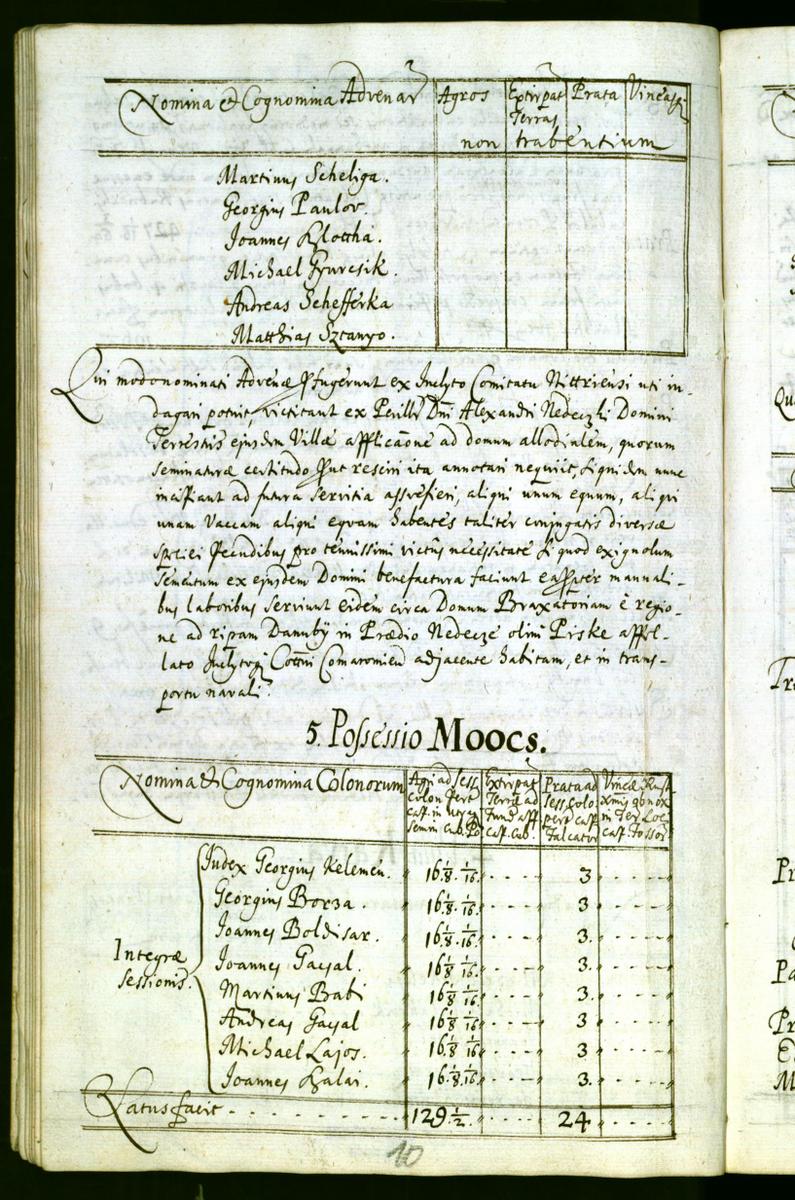 Nomina et Cognomina Advenar
Agros
Extirpat Terras
Prata
Vineas
non trabentium
Martinus Scheliga.
Georgius Paulov.
Joannes Klottha.
Michael Gyurcsik.
Andreas Schefferka
Matthias Sztanyo.
Qui modo nominati Advenæ profugerunt ex Inclyto Comitatu Nittriensi uti in-
dagari potuit, victitant ex Perillr Dni Alexandri Nedeczki Domini
Terrestris ejusdem Villæ applicaone ad domum allodialem, quorum
seminaturæ certitudo sicut resciri ita annotari nequiit, siquidem nunc
incipiant ad futura servitia assvefieri, aliqui unum equum, aliqui
unam Vaccam aliqui eqvam habentes taliter conjugatis diversæ
speciei Pecudibus pro tenuissimi victus necessitate si quod exignolum
sementum ex ejusdem Domini benefactura faciunt ea propter manuali-
bus laboribus serviunt eidem circa Domum Braxatoriam è regio-
ne ad ripam Danubÿ in Prædio Nedecze olim Piske appel-
lato Comaromien adjacente habitam, et in trans-
portu navali.
5. Possessio Moocs.
Nomina et Cognomina Colonorum
Agri ad sess colon pert cap. in utrq semin cub. Po
Extirpat Terræ ad fund app cap. cub.
Prata ad sess. colo pert cap falcator
Vineæ in Ter Loc cap. fossor
Integræ sessionis.
Judex Georgius Kelemen. 16 1/8. 1/16. 3
Georgius Borza. 16 1/8. 1/16. 3.
Joannes Boldisar. 16 1/8. 1/16. 3.
Joannes Gayal. 16 1/8 1/16. 3.
Martinus Babi 16 1/8 1/16. 3.
Andreas Gayal 16 1/8 1/16. 3
Michael Lajos. 16 1/8 1/16. 3
Joannes Halai. 16. 1/8. 1/16. 3.
Latus facit 129 1/2. 24
10